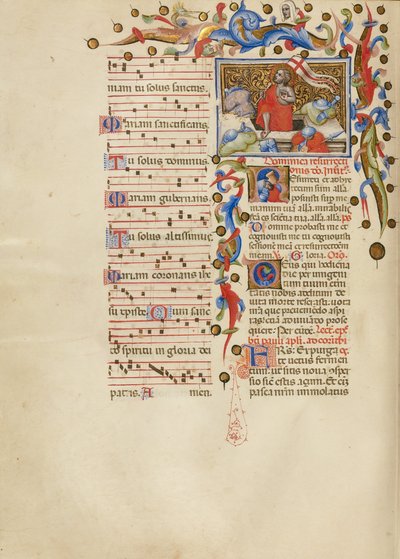 niam tu solus sanctus
Mariam sanctificans
Tu solus dominus
Mariam gubernans
Tu solus altissimus
Mariam coronans ihe
su christe Qum sanc
to spiritu in gloria dei
patris. A men.
Dominica resurrecti
onis
Resurrexi et adhuc
tecum sum alla
posuisti sup me
manum tuā alla. mirabilis
cā ē scientia tua alla. alla. ps
Domine probasti me et
cognovisti me tu cognovisti
sessionē meā et resurrectionē
meam. Gloria. Oro.
Deus qui hodierna
die per unigeni
tum tuum eterni
tatis nobis aditum de
victa morte reserasti. vota n̄
ra que preveniendo aspi
ras etiā adiuvādo prose
quere. Per eundē. Lectio epl̄e
bti pauli apl̄i. ad corinthi
FRS. Expurga
te vetus fermen
tum. ut sitis nova ꝯsper
sio sicut estis açimi. Etēī
pasca nr̄m imolatus